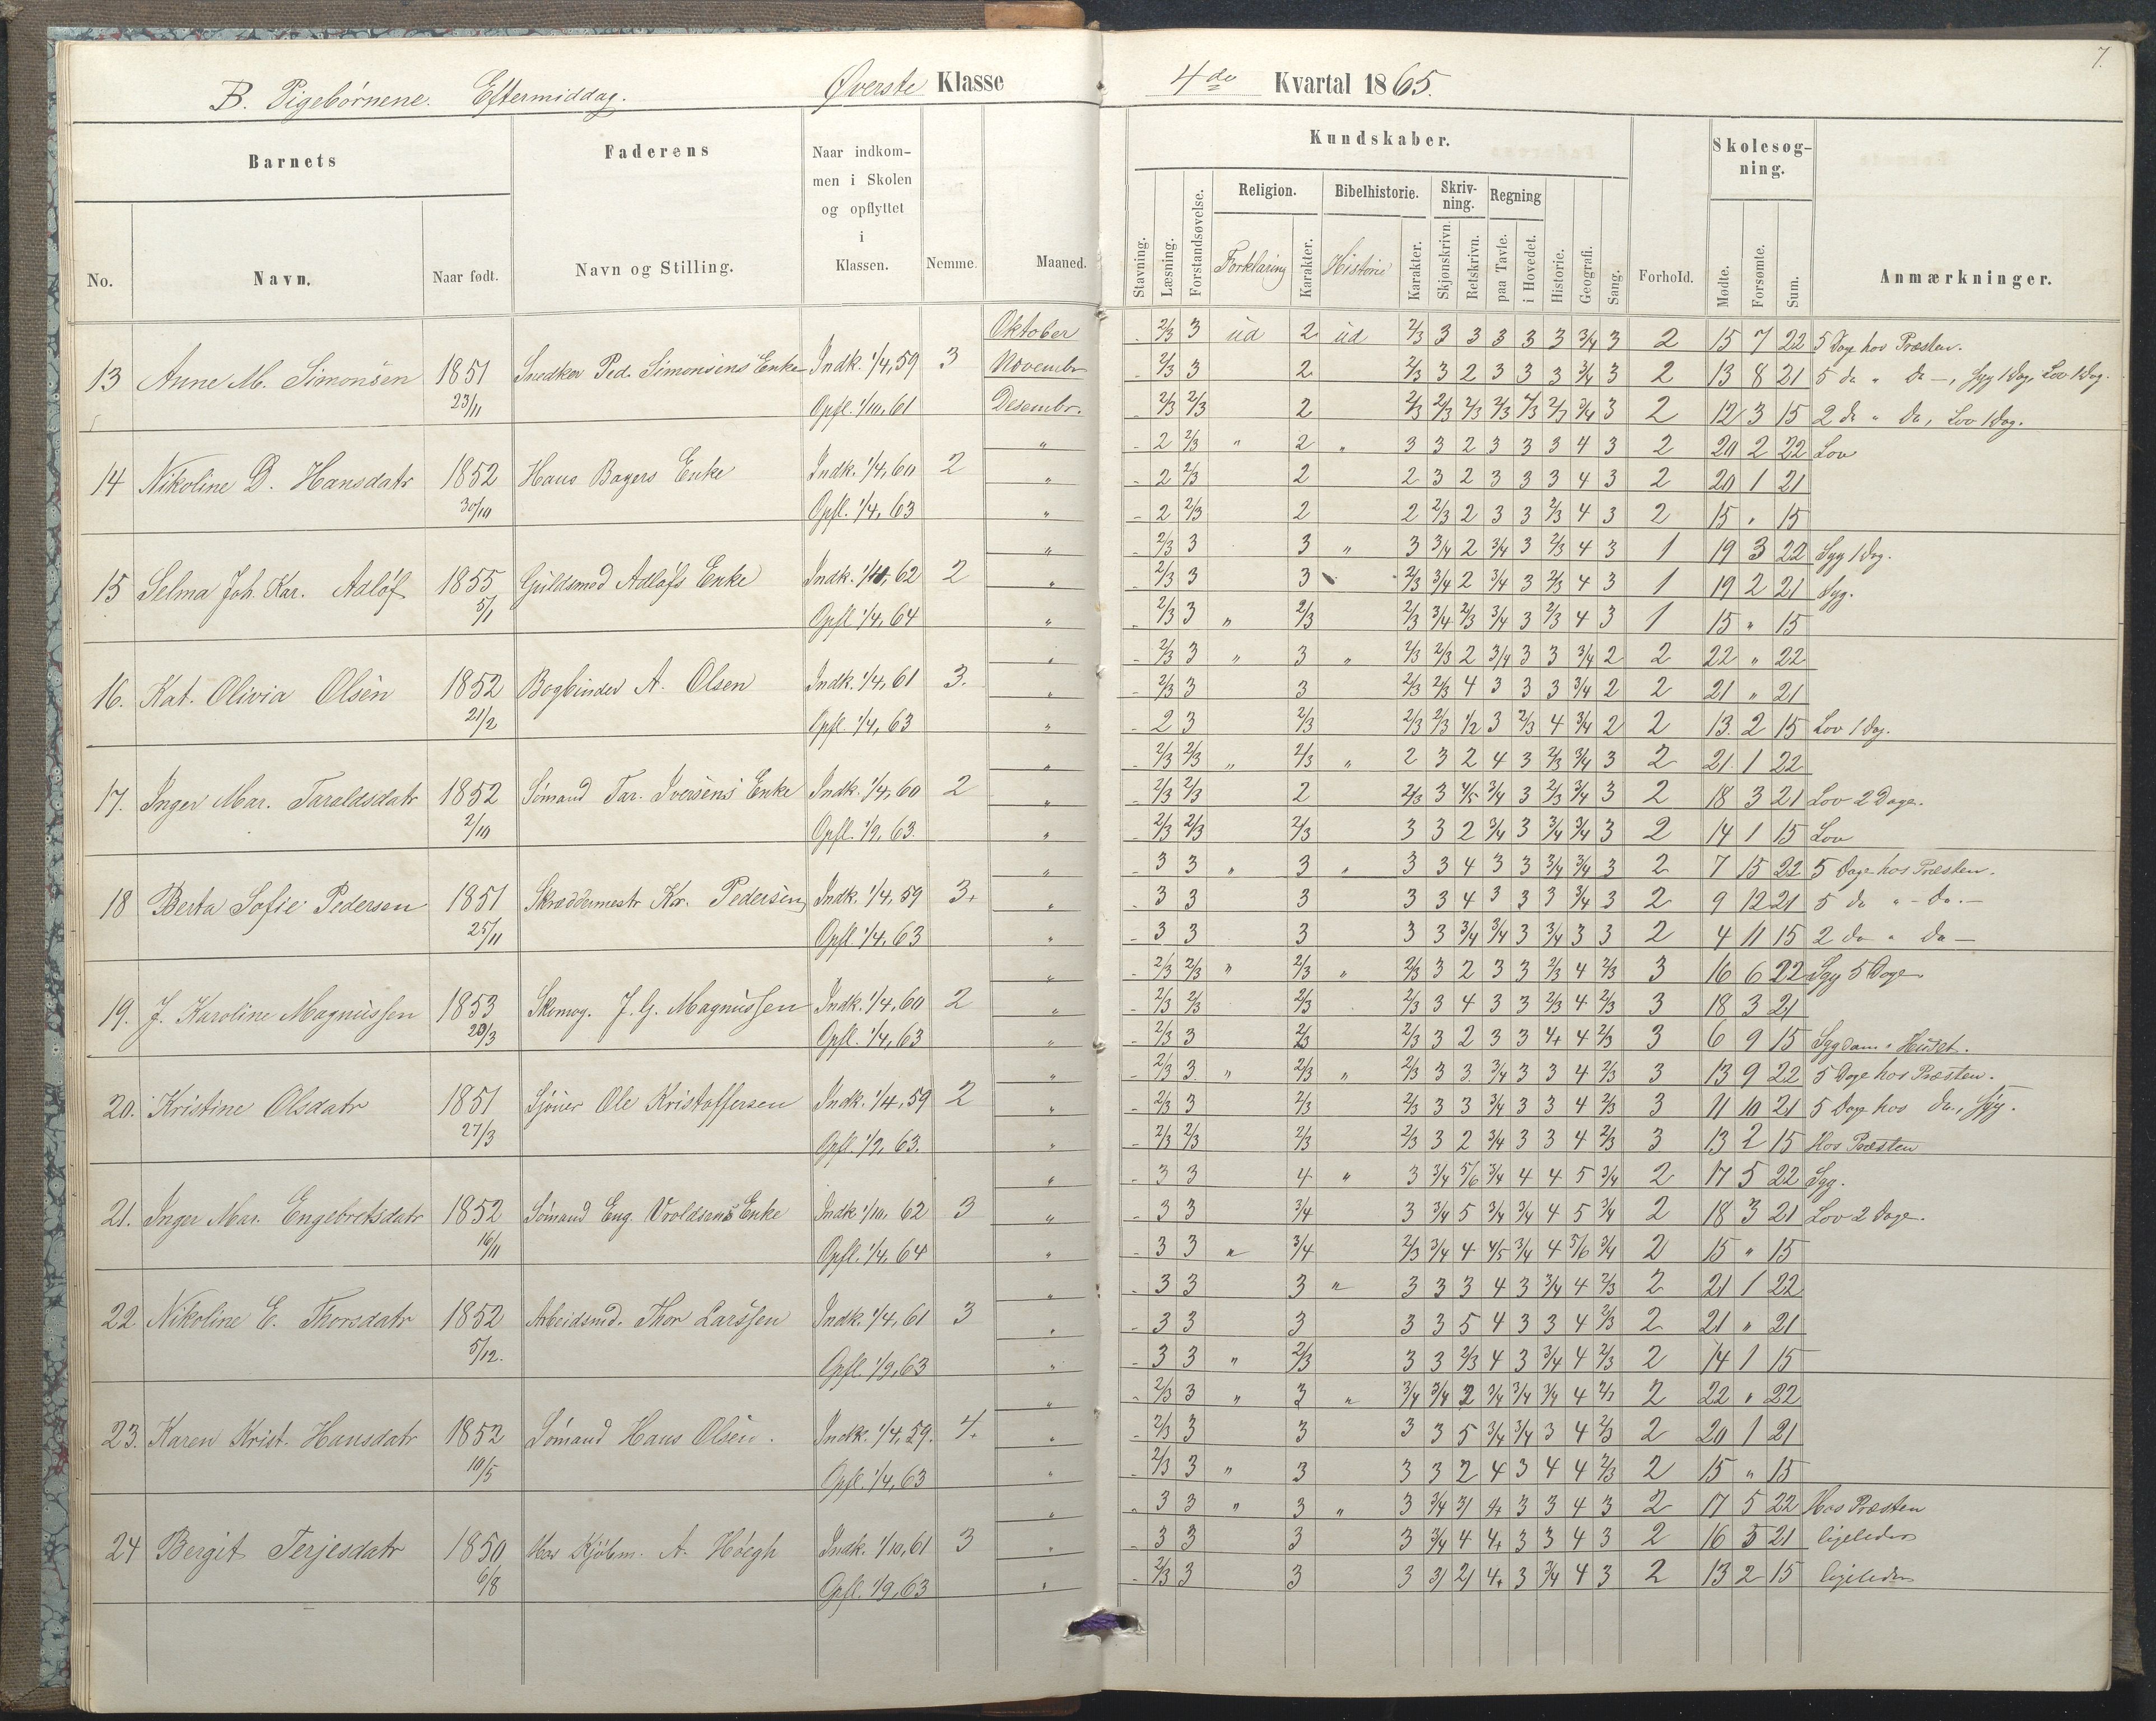 7.
B. Pigebørnene. Eftermiddag. Øverste Klasse 4de Kvartal 1865.
Barnets Faderens Naar indkommen i Skolen og opflyttet i Klassen. Nemme. Maaned. Kundskaber. Forhold. Skolesogning. Anmærkninger.
No. Navn. Naar født. Navn og Stilling. Stavning. Læsning. Forstandsøvelse. Religion. Forklaring Karakter. Bibelhistorie. Historie Karakter. Skrivning. Skjønskrivn. Retskrivn. Regning paa Tavle. i Hovedet. Historie. Geografi. Sang. Mødte. Forsømte. Sum.
Oktober - 2/3 3 ud 2 ud 2/3 3 3 3 3 3 3/4 3 2 15 7 22 5 Dage hos Præsten.
13 Anne M. Simonsen 1851 Snedker Ped. Simonsens Enke Indk. 1/4, 59 3 Novembr - 2/3 3 2 2/3 3 2 3 3 3 3/4 3 2 13 8 21 5 do " do -, Syg 1 Dag, Lov 1 Dag.
23/11 Opfl. 1/10, 61 Desembr. - 2/3 2/3 2 2/3 2/3 2/3 2/3 2/3 2/3 3/4 3 2 12 3 15 2 do " do, Lov 1 Dag.
" - 2 2/3 " 2 " 3 3 2 3 3 3 4 3 2 20 2 22 Lov
14 Nikoline D. Hansdatr 1852 Hans Bagers Enke Indk. 1/4, 60 2 " - 2 2/3 2 2 3 2 3 3 3 4 3 2 20 1 21
30/10 Opfl. 1/4, 63 " - 2 2/3 2 2 2/3 2 3 3 2/3 4 3 2 15 " 15
" - 2/3 3 3 " 3 3/4 2 3/4 3 2/3 4 3 1 19 3 22 Syg 1 Dag.
15 Selma Joh. Kar. Adløf 1855 Guldsmed Adløfs Enke Indk. 1/10, 62 2 " - 2/3 3 3 2/3 3/4 2 3/4 3 2/3 4 3 1 19 2 21 Syg.
5/1 Opfl. 1/4, 64 " - 2/3 3 " 2/3 2/3 3/4 2/3 3/4 3 2/3 4 3 1 15 " 15
" - 2/3 3 " 3 " 2/3 2/3 2 3/4 3 3 3/4 2 2 22 " 22
16. Kat. Olivia Olsen 1852 Bogbinder A. Olsen Indk. 1/4, 61 3. " - 2/3 3 3 2/3 2/3 4 3 3 3 3/4 2 2 21 " 21
21/2 Opfl. 1/4, 63 " - 2 3 2/3 2/3 2/3 1/2 3 2/3 4 3/4 2 2 13. 2 15 Lov 1 Dag.
" - 2/3 2/3 " 2/3 " 2 3 2 4 3 2/3 3/4 3 2 21. 1 22
17. Inger Mar. Taraldsdatr 1852 Sømand Tar. Iversens Enke Indk. 1/4, 60 2 " - 2/3 2/3 2 2/3 3 4/5 3/4 3 2/3 3/4 3 2 18 3 21 Lov 2 Dage.
2/10 Opfl. 1/9, 63. " - 2/3 2/3 2/3 3 3 2 3/4 3 3/4 3/4 3 2 14 1 15 Lov
" - 3 3 " 3 " 3 3 4 3 3 3/4 3/4 3 2 7 15 22 5 Dage hos Præsten.
18 Berta Sofie Pedersen 1851 Skræddermestr Kr. Pedersen Indk. 1/4, 59 3+ " - 3 3 3 3 3 4 3 3 3 3/4 3 2 9 12 21 5 do " - do. -
25/11 Opfl. 1/4, 63 " - 3 3 3 3 3 3/4 3/4 3 3/4 3 3 2 4 11 15 2 do " do -
" - 2/3 2/3 " 2/3 " 2/3 3 2 3 3 2/3 4 2/3 3 16 6 22 Syg 5 Dage
19. J. Karoline Magnussen 1853 Skomag. J. G. Magnussen Indk. 1/4, 60 2 " - 2/3 2/3 2/3 2/3 3 4 3 3 2/3 4 2/3 3 18 3 21
20/3 Opfl. 1/4, 63 " - 2/3 3 2/3 2/3 3 2 3 3 4+ 4 2/3 3 6 9 15 Sygdom i Huset.
" - 2/3 3. " 2/3 " 2/3 3 3. 3/4 3 3 4 2/3 3 13 9 22 5 Dage hos Præsten.
20. Kristine Olsdatr 1851 Sjouer Ole Kristoffersen Indk. 1/4, 59 2 " - 2/3 3 2/3 2/3 3 3 3/4 3 3 4 2/3 3 11 10 21 5 Dage hos do., Syg.
27/3 Opfl. 1/9, 63. " - 2/3 2/3 2/3 2/3 3 2 3/4 3 3 4 2/3 3 13 2 15 Hos Præsten
" - 3 3 4 " 3 3/4 5/6 3/4 4 4 5 3/4 2 17 5 22 Syg.
21. Inger Mar. Engebretsdatr 1852 Sømand Eng. Vroldsens Enke Indk. 1/10, 62 3 " - 3 3 3/4 3 3/4 5 3/4 3/4 4 5 3/4 2 18 3 21 Lov 2 Dage.
16/11 Opfl. 1/4, 64 " - 3 3 " 3/4 2/3 3/4 4 4/5 3/4 4 5/6 3/4 2 15 " 15
" - 3 3 3 " 3 3 3 4 3 3/4 4 2/3 2 21 1 22
22 Nikoline E. Thorsdatr 1852 Arbeidsmd. Thor Larssen Indk. 1/4, 61 3 " - 3 3 3 3 3 5 4 3 3 4 2/3 2 21 " 21
5/12. Opfl. 1/9, 63 " - 3 3 " 2/3 3 3 2/3 4 3 3/4 4 2/3 2 14 1 15
" - 2/3 3 " 3 " 3/4 3/4 2 3/4 3/4 3/4 4 2/3 2 22 " 22
23. Karen Krist. Hansdatr 1852 Sømand Hans Olsen. Indk. 1/4, 59. 4. " - 2/3 3 3 3 3 5 3/4 3/4 3 4 2/3 2 20 1 21
10/5 Opfl. 1/4, 63 " - 2/3 3 " 3 3 3 2 4 3 4 4 2/3 2 15 " 15
" - 3 3 " 3 " 3 3/4 3/ 4+ 3 3 4 3 2 17 5 22 Hos Præsten
24 Bergit Terjesdatr 1850 Hos Kjøbm. A. Høegh Indk. 1/10, 61 3 " - 3 3 3 3 3/4 4 4+ 3 3 4 3 2 16 5 21 ligeledes
6/8 Opfl. 1/9, 63 " - 2/3 3 3 3 3/ 2/ 4+ 3 3/4 4 3 2 13 2 15 ligeledes